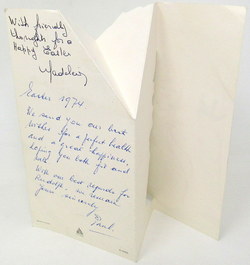 With friendly
thoughts for a
Happy Easter
Madeleine
Easter 1974.
We send you our best
wishes for a perfect health
and a great happiness,
hoping you both fit and
well.
With our best regards for
Rudolph, we remain
yours sincerely